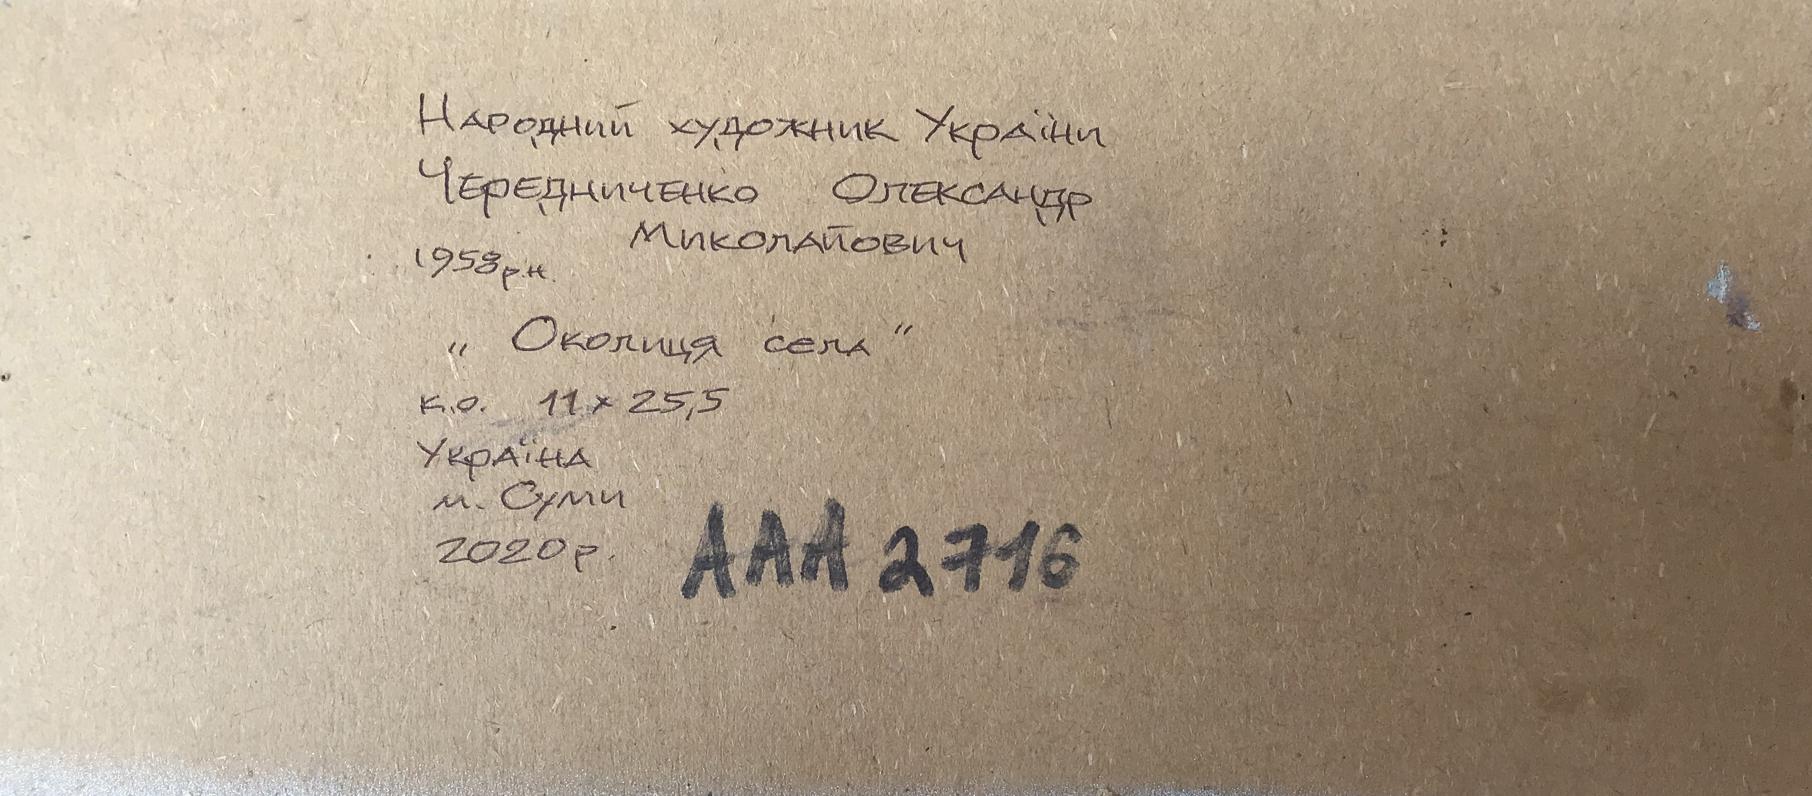 Народний художник України
Чередниченко Олександр
Миколайович
1958 р.н.
„ Околиця села "
к.о. 11 x 25,5
Україна
м. Суми
2020 р.
ААА 2716